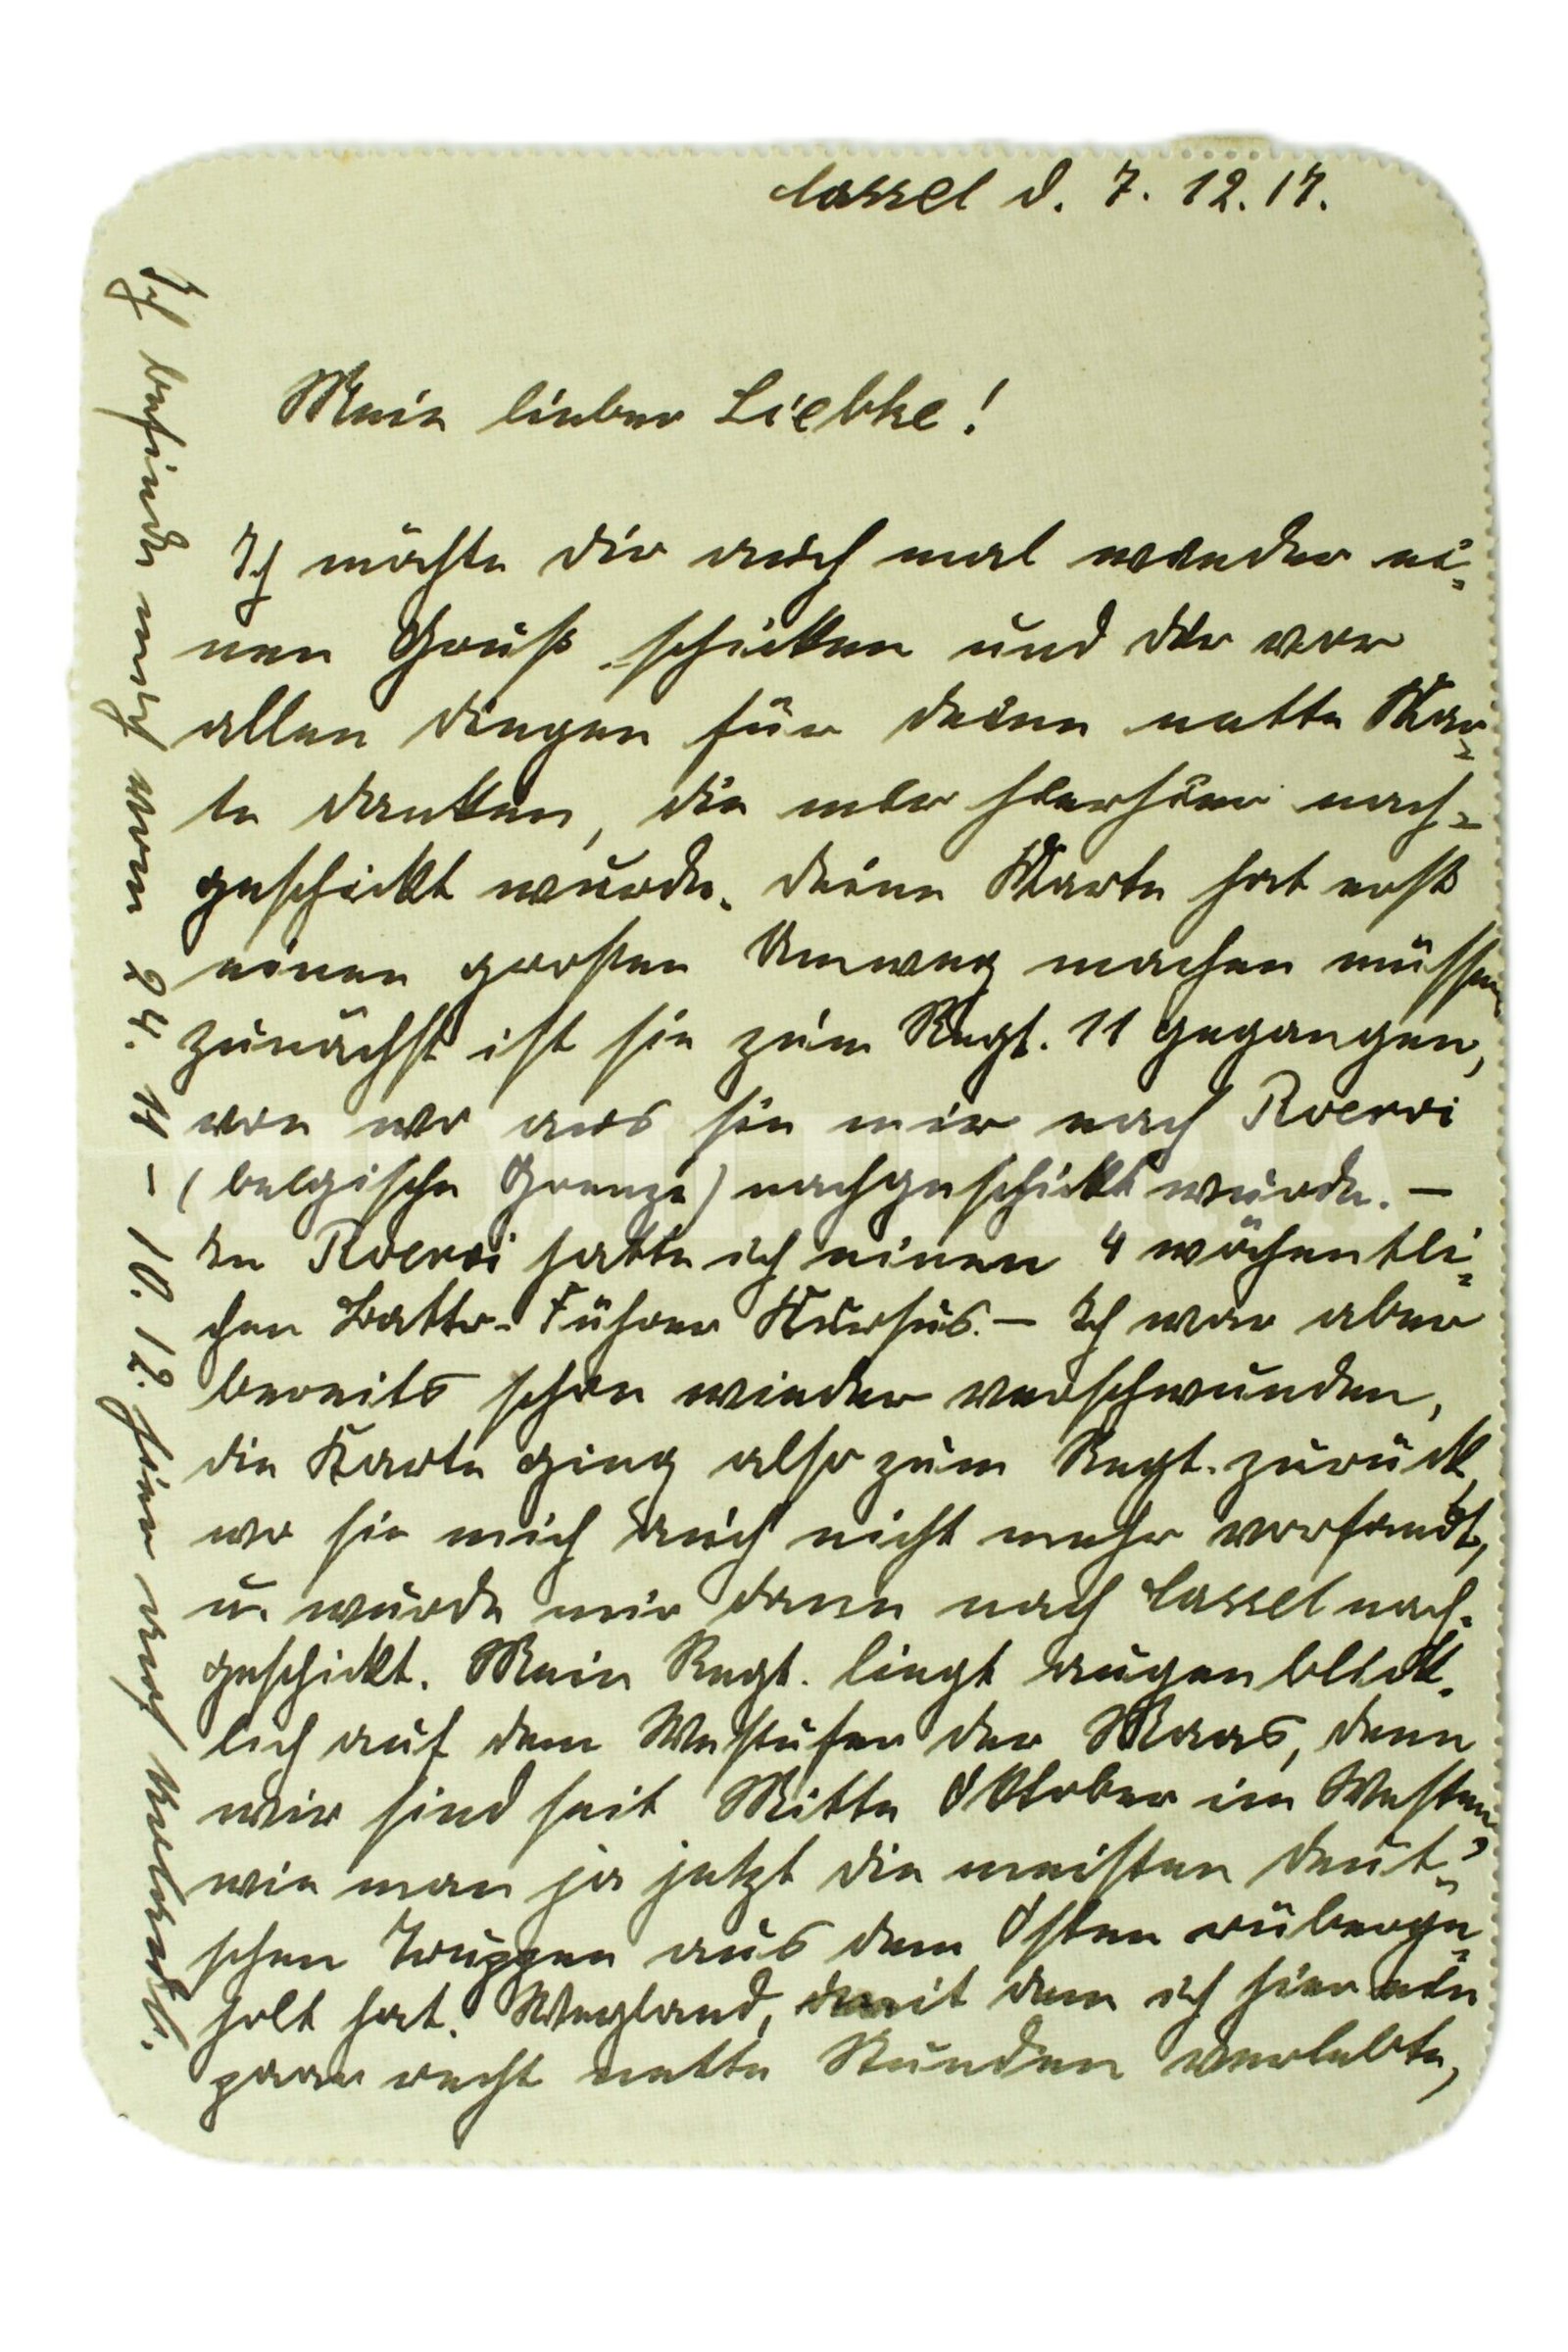 Cassel d. 7. 12. 17.
Mein lieber Liebke!
Ich möchte dir auch mal wieder ei-
nen Gruß schicken und dir vor
allen dingen für deine nette Kar-
te danken, die mir hierher nach-
geschickt wurde. deine Karte hat erst
einen großen Umweg machen müssen
zunächst ist sie zum Regt. 11 gegangen,
von wo aus sie mir nach Rocroi
(belgische Grenze) nachgeschickt wurde. —
In Rocroi hatte ich einen 4 wöchentli-
chen Battr. Führer Kursus. — Ich war aber
bereits schon wieder verschwunden,
die Karte ging also zum Regt. zurück,
wo sie mich auch nicht mehr vorfandt,
u. wurde mir dann nach Cassel nach-
geschickt. Mein Regt. liegt augenblick-
lich auf dem Westufer der Maas, denn
wir sind seit Mitte Oktober im Westen
wie man ja jetzt die meisten deut-
schen Truppen aus dem Osten rüberge-
holt hat. Wegland, mit dem ich hier ein
paar recht nette Stunden verlebte,
Ich befinde mich vom 24. 11 – 10. 12. hier auf Urlaub.